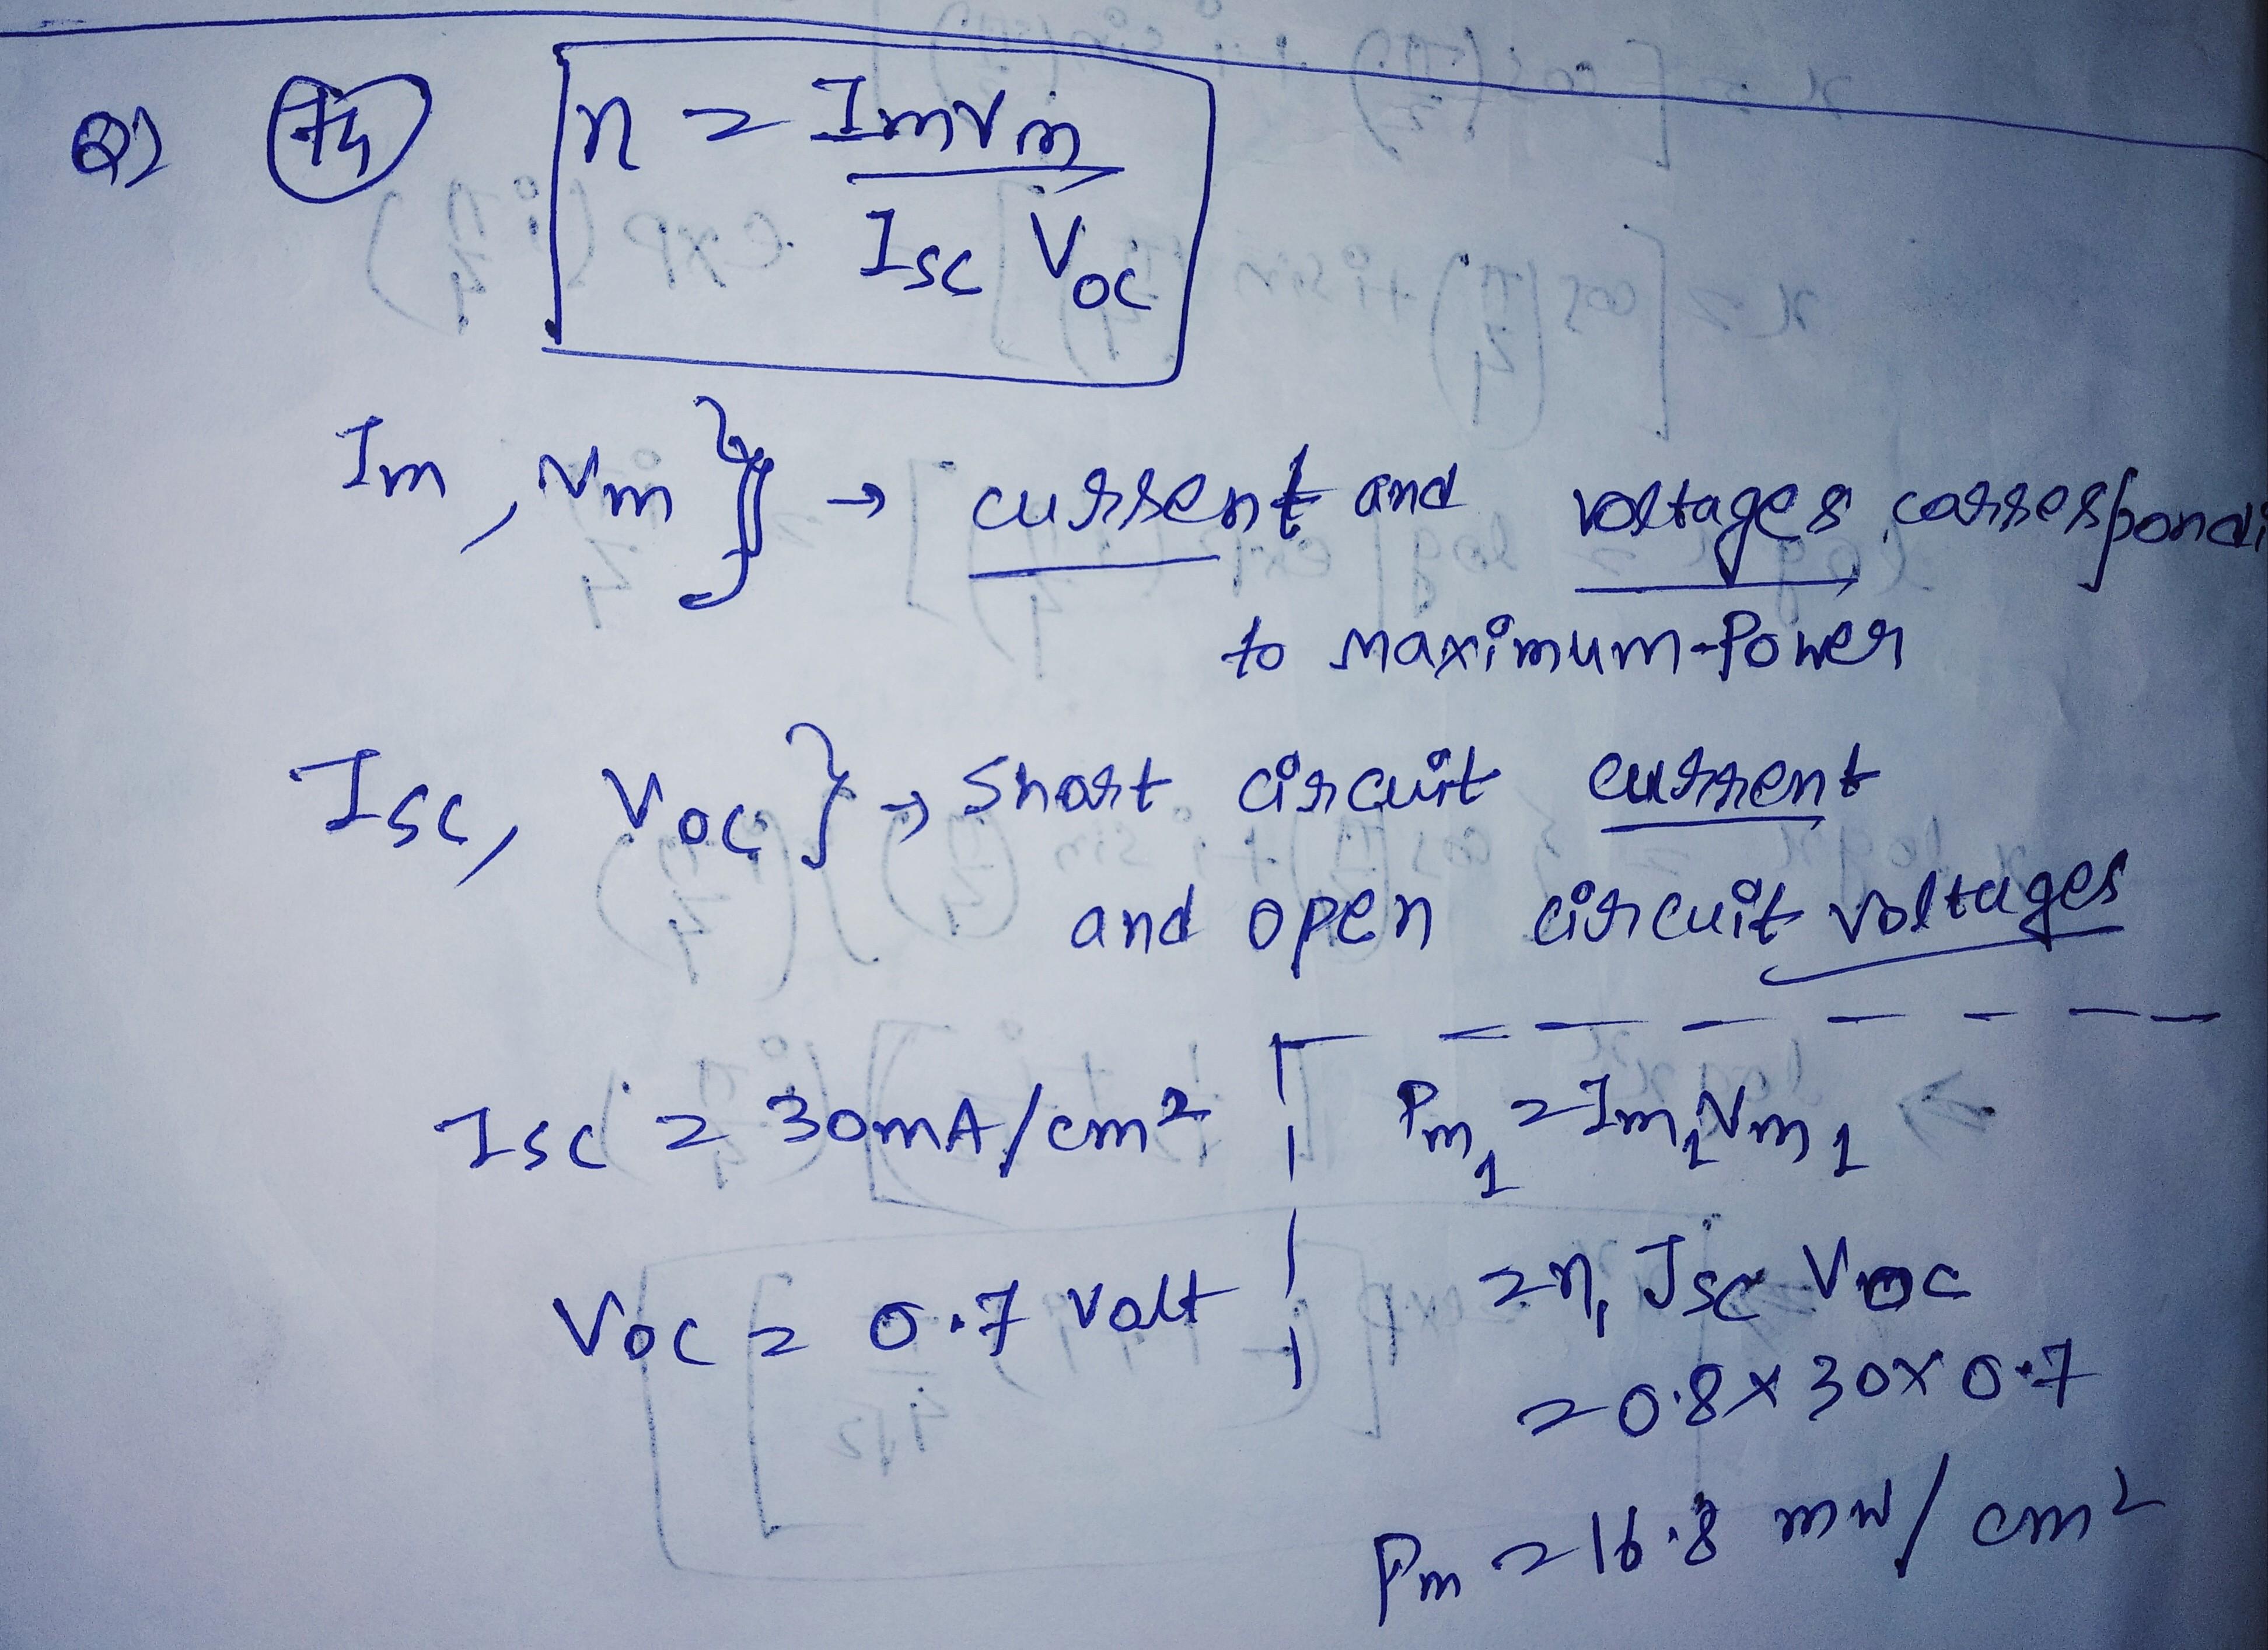 Q) 74 η = ImVm / Isc Voc
Im, Vm } → current and voltages correspondi
to maximum-Power
Isc, Voc } → Short circuit current
and open circuit voltages
Isc = 30mA/cm²
Voc = 0.7 Volt
Pm₁ = Im₁Vm₁
= η₁ Jsc Voc
= 0.8 x 30 x 0.7
Pm = 16.8 mW/cm²